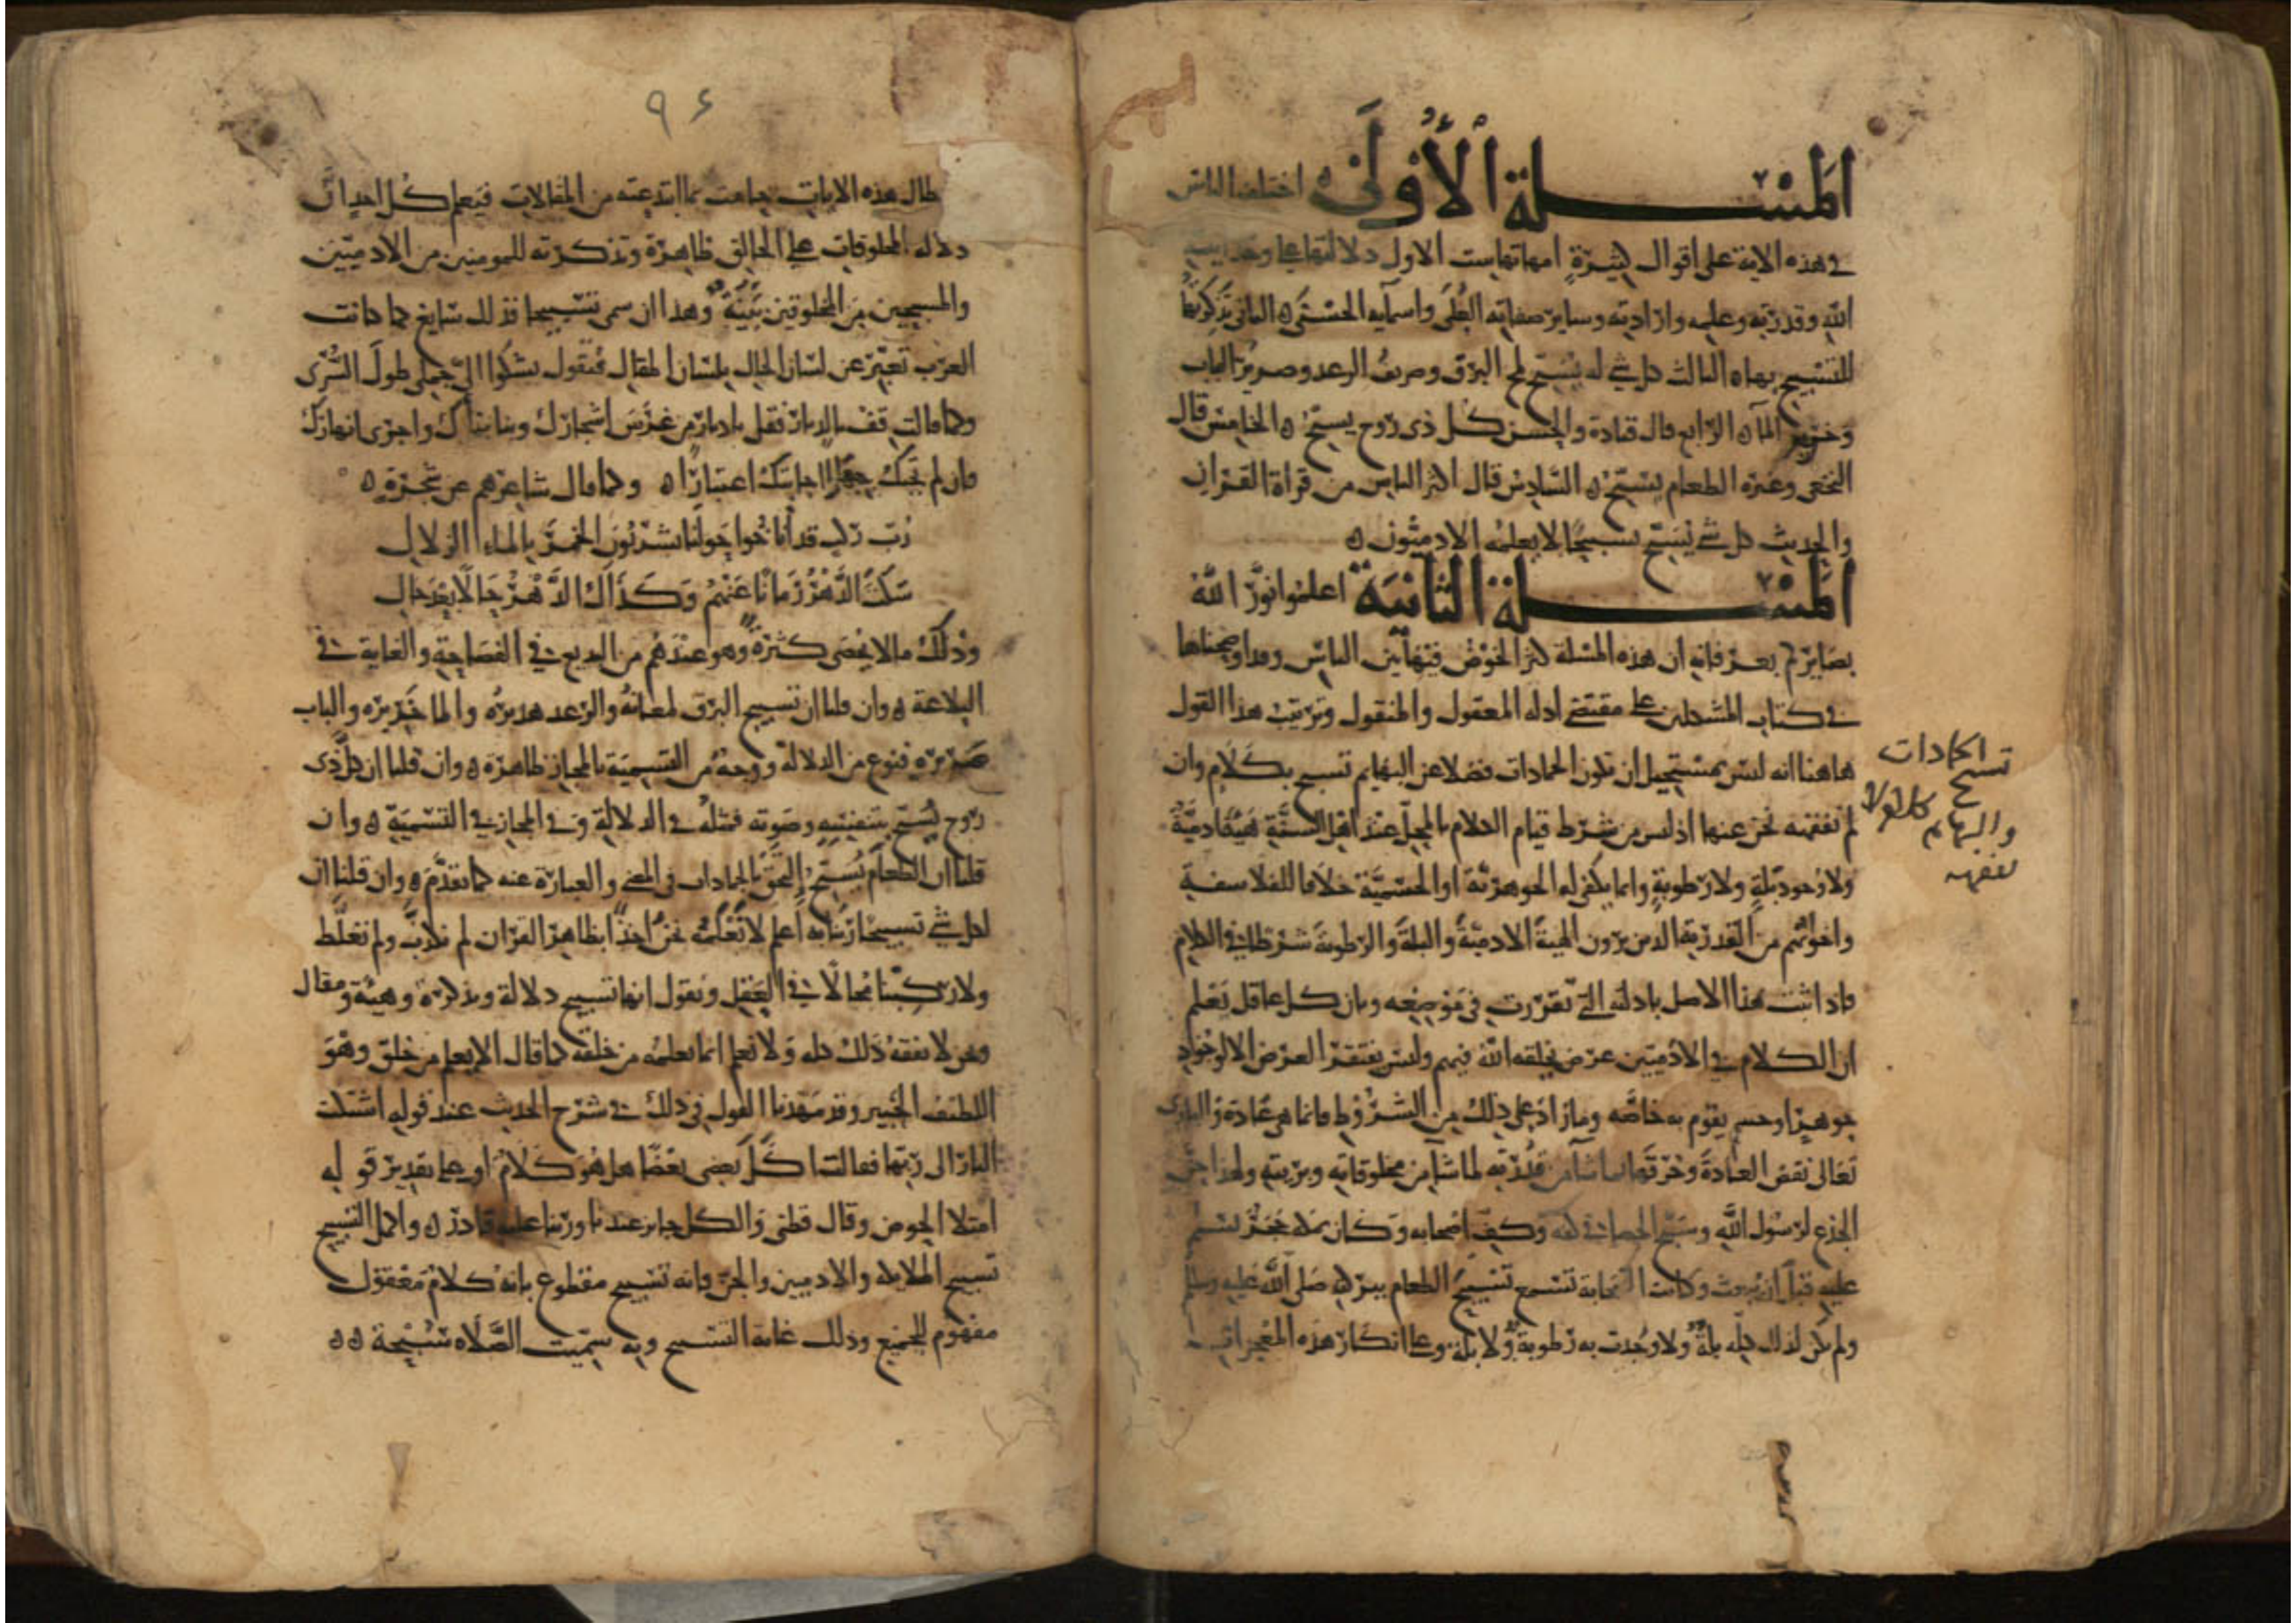 المسلة الأولى اختلف الناس
في هذه الاية على أقوال كثيرة امهاتها ست الاول دلالتها على وحدانية
الله وقدرته وعلمه وارادته وساير صفاته العلى واسمآيه الحسنى ه الثاني تذكرتها
للتسبيح بها ه الثالث كل شي له يسبح لمح البرق وصريف الرعد وصرير الباب
وخرير المآ ه الرابع قال قتادة والحسن كل ذى روح يسبح ه الخامس قال
النخعي وغيره الطعام يسبح ه السادس قال اكثر الناس من قراة القران
والحديث كل شي يسبح تسبيحا لا يعلمه الادميون ه
المسلة الثانية اعلموا نور الله
بصايركم بعرفانه ان هذه المسلة كثر الخوض فيها بين الناس وقد اوضحناها
في كتاب المشكلين على مقتضى ادلة المعقول والمنقول وترتيب هذا القول
هاهنا انه ليس بمستحيل ان تكون الجمادات فضلا عن البهايم تسبح بكلام وان
لم نفقهه نحن عنها اذ ليس من شرط قيام الكلام بالمحل عند اهل السنة هيئة ادمية
ولا وجود بلة ولا رطوبة وانما يكفي له الجوهرية او الجسمية خلافا للفلاسفة
واخوتهم من القدرية الذين يرون الهيئة الادمية والبلة والرطوبة شرطا في الكلام
فاذا ثبت هذا الاصل بادلته التي تقررت في موضعه وبان كل عاقل يعلم
ان الكلام في الادميين عرض يخلقه الله فيهم وليس يفتقر العرض الا لوجود
جوهر او جسم يقوم به خاصة وما زاد على ذلك من الشروط فانما هي عادة والبارى
تعالى نقض العادة وخرقها بما شآ من قدرته لما شآ من مخلوقاته وبريته ولهذا حن
الجذع لرسول الله وسبح الحصا في كفه وكف اصحابه وكان بمكة حجر يسلم
عليه قبل ان يبعث وكانت الصحابة تسمع تسبيح الطعام ببركة صلى الله عليه وسلم
ولم يكن لذلك كله بلة ولا وجدت به رطوبة ولا بلة وعلى انكار هذه المعجزات
تسبيح الجمادات
والبهايم كلام لا
نفقهه
٩٤
طال هذه الايات حامت بما ابتدعته من المقالات فيعلم كل احد ان
دلالة المخلوقات على الخالق ظاهرة وتذكرته للمومنين من الادميين
والمسبحين من المخلوقين بينة وهذا ان سمي تسبيحا فذلك شايع كما كانت
العرب تعبر عن لسان الحال بلسان المقال فتقول يشكوا الي جملي طول السرى
وكما قالت قف بالديار فقل يا ديار من غرس اشجارك وبنا بناك واجرى انهارك
فان لم تجبك جهارا اجابتك اعتبارا ه وكما قال شاعرهم عن شجرة ه
رب ركب قد أناخوا حولنا يشربون الخمر بالماء الزلال
سكت الدهر زمانا عنهم وكذاك الدهر حالا بعد حال
وذلك ما لا يحصى كثرة وهو عندهم من البديع في الفصاحة والغاية في
البلاغة ه وان قلنا ان تسبيح البرق لمعانه والرعد هديره والما خريره والباب
صريره فنوع من الدلالة ووجه من التسمية بالمجاز ظاهرة ه وان قلنا ان كل ذى
روح يسبح بنفسه وصوته فمثله في الدلالة وفي المجاز في التسمية ه وان
قلنا ان الطعام يسبح التحق بالجمادات في المعنى والعبارة عنه كما تقدم ه وان قلنا ان
لكل شي تسبيحا ربنا به اعلم لا نعلمه نحن اخذا بظاهر القران لم نكذب ولم نغلط
ولا ركبنا محالا في العقل ونقول انها تسبيح دلالة وتذكرة وهيئة ومقال
ونحن لا نفقه ذلك كله ولا نعلم انما يعلمه من خلقه كما قال الا يعلم من خلق وهو
اللطيف الخبير وقد مهدنا القول في ذلك في شرح الحديث عند قوله اشتكت
النار الى ربها فقالت اكل بعضي بعضا هل هو كلام او على تقدير قوله
امتلا الحوض وقال قطني والكل جايز عندنا وربنا عليه قادر ه واكمل التسبيح
تسبيح الملايكة والادميين والجن فانه تسبيح مقطوع بانه كلام معقول
مفهوم للجميع وذلك غاية التسبيح وبه سميت الصلاة سبحة ه ه